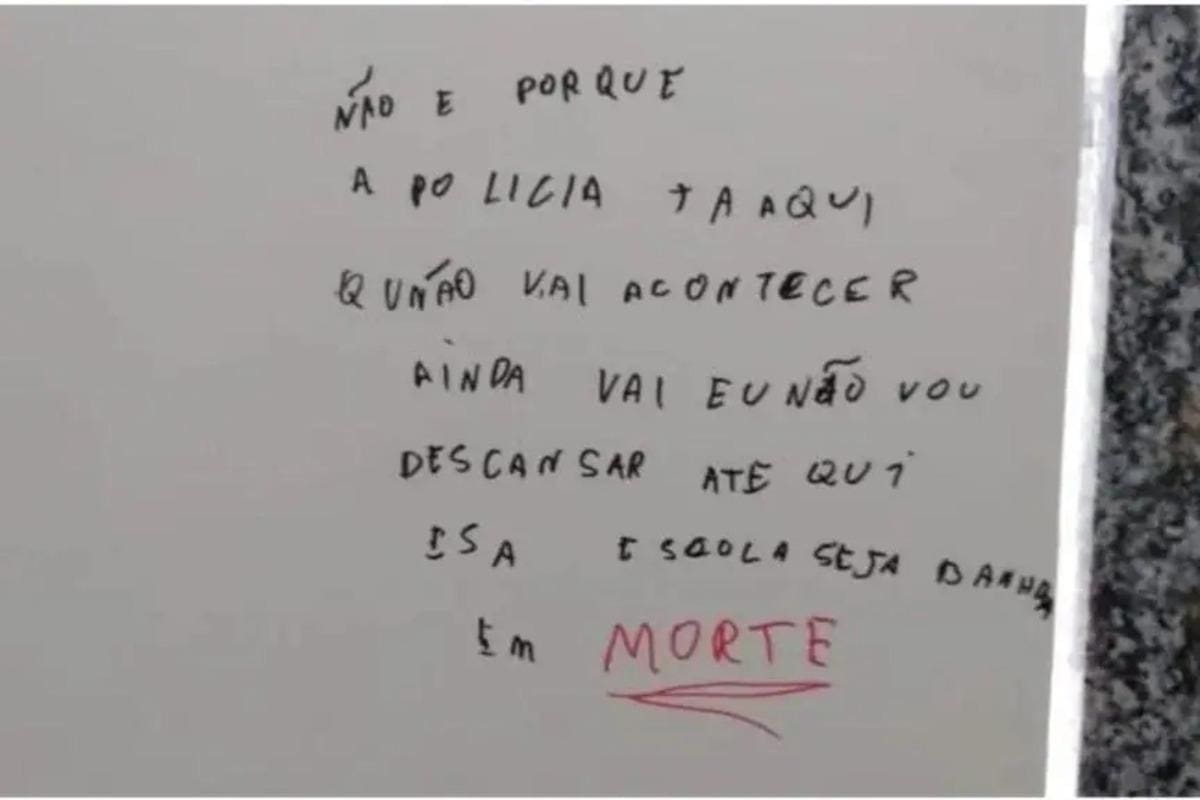 NÃO E PORQUE
A POLICIA TA AQUI
QUNÃO VAI ACONTECER
AINDA VAI EU NÃO VOU
DESCANSAR ATE QUI
ESA ESCOLA SEJA BANHADA
Em MORTE